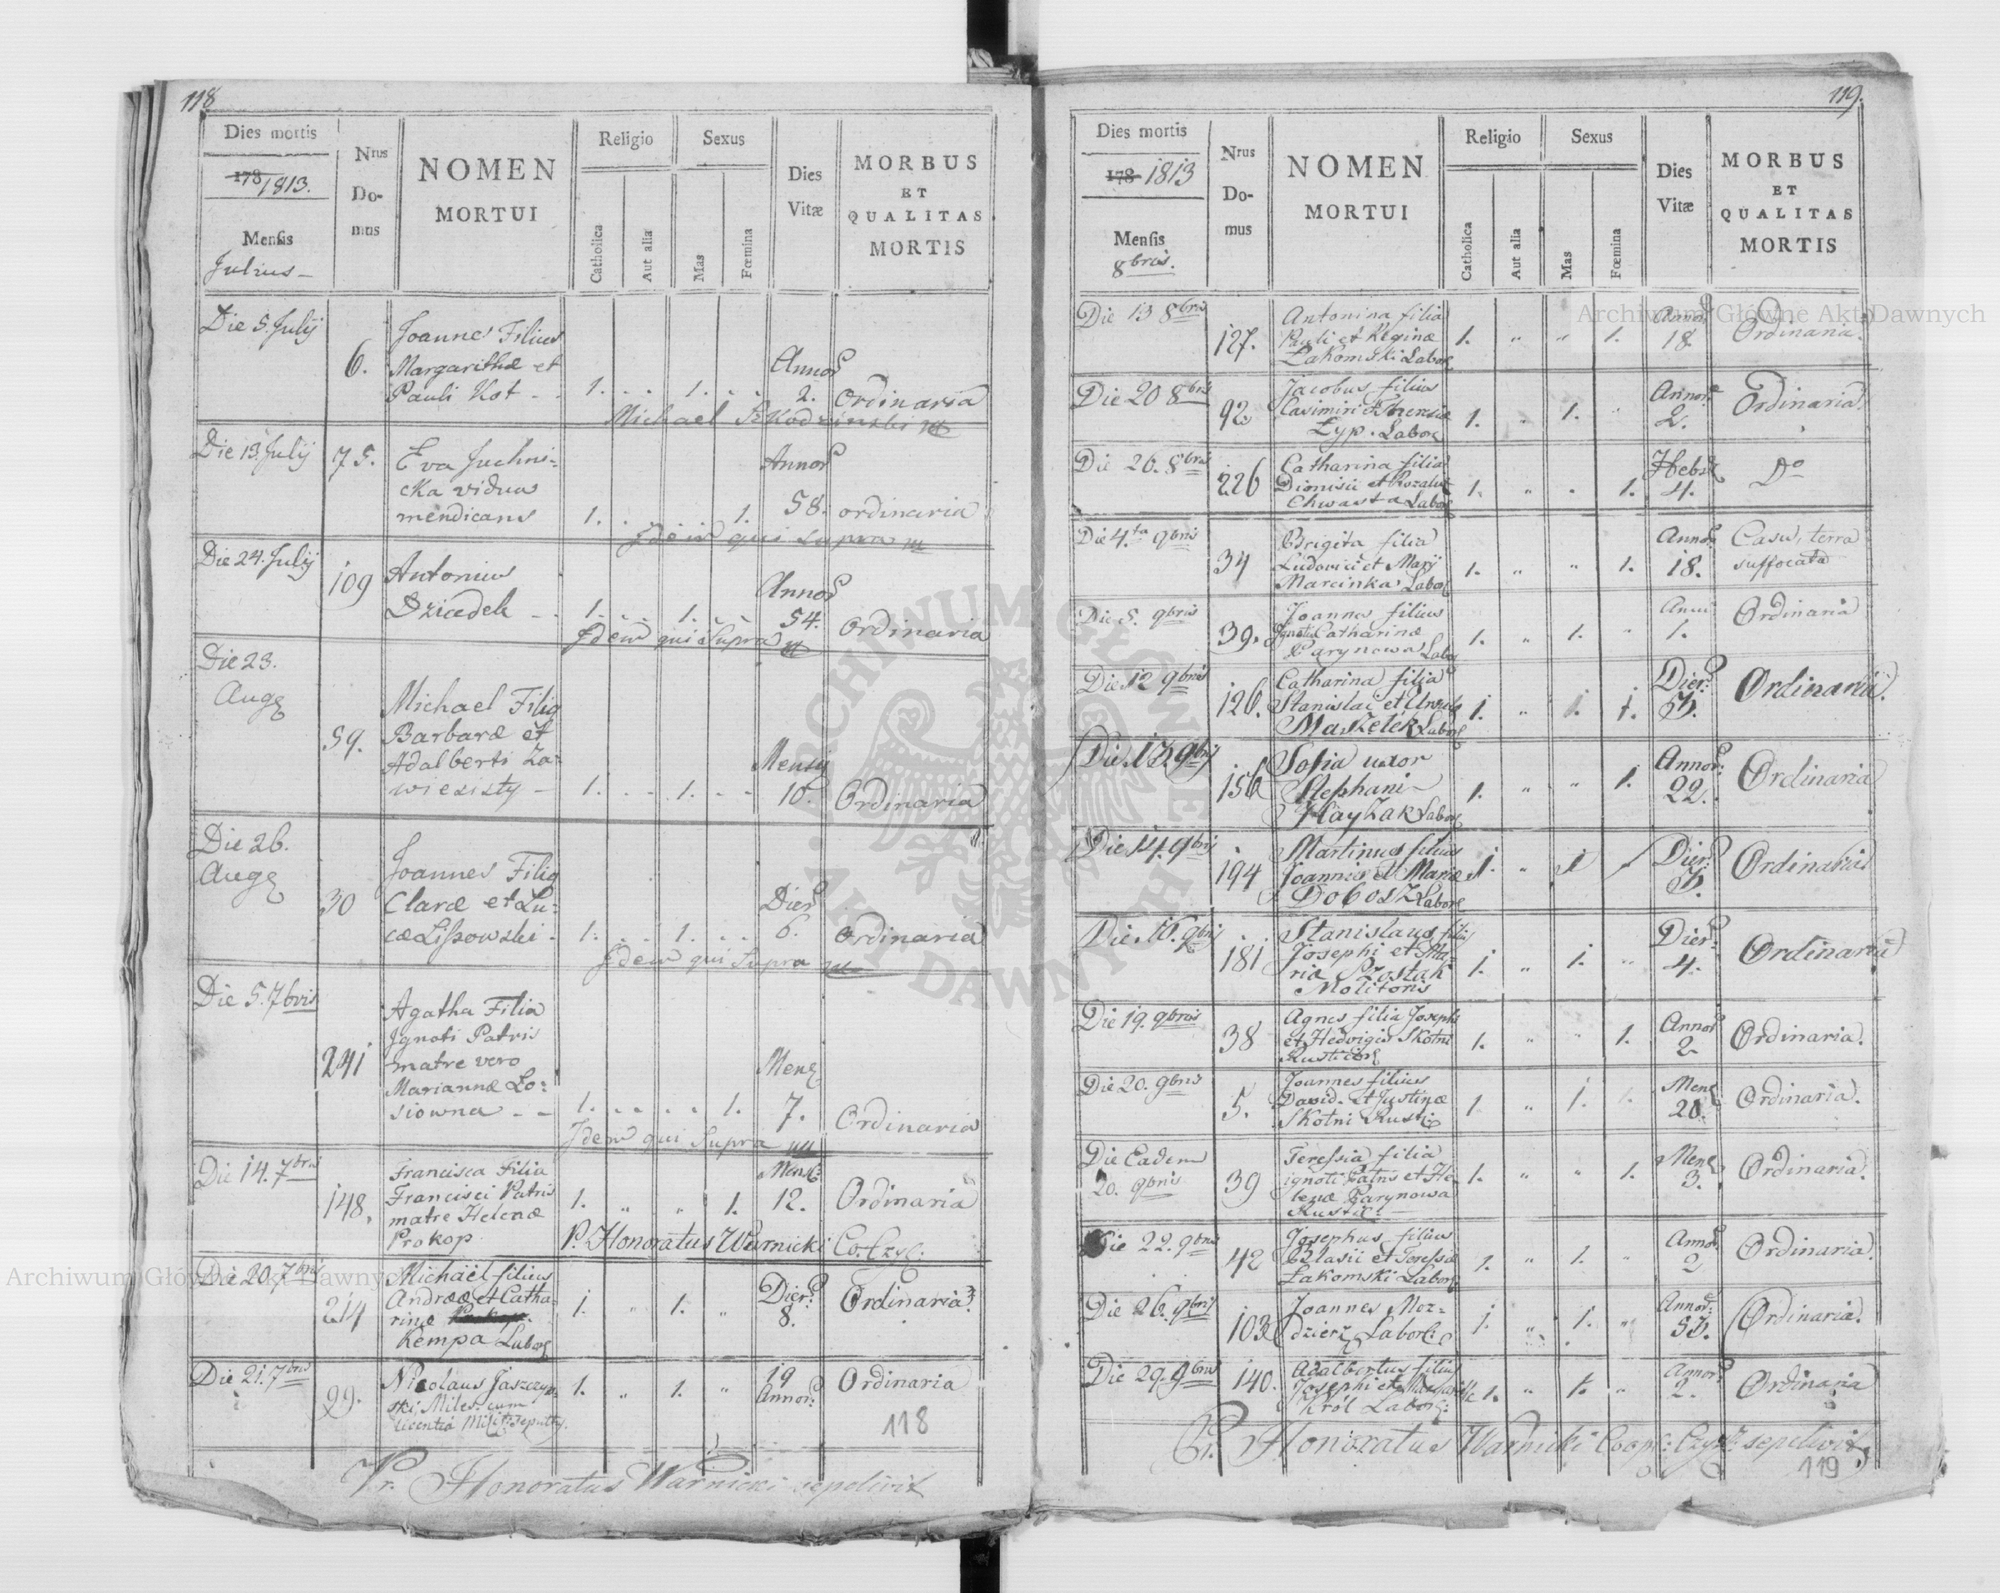 118
Dies mortis
178 1813.
Mensis
Julius
Nrus Do- mus
NOMEN
MORTUI
Religio
Catholica
Aut alia
Sexus
Mas
Fœmina
Dies
Vitæ
MORBUS
ET
QUALITAS
MORTIS
Die 5. Julij
6.
Joannes Filius
Margarithæ et
Pauli Kot
1. 1.
Annor
2.
Ordinaria
Michael
Die 13. Julij
75.
Eva Juchni-
cka vidua
mendicans
1. 1.
Annor
58.
ordinaria
Idem qui supra
Die 24. Julij
109
Antonius
Dziadek
1. 1.
Annor
54.
Ordinaria
Idem qui Supra
Die 23.
Aug
59.
Michael Fili9
Barbaræ et
Adalberti Za-
wiezisty
1. 1.
Mensy
10.
Ordinaria
Die 26.
Aug
30
Joannes Fili9
Claræ et Lu-
cæ Lissowski
1. 1.
Dier
6.
Ordinaria
Idem qui Supra
Die 5. 7bris
241
Agatha Filia
Ignoti Patris
matre vero
Mariannæ Lo-
siowna
1. 1.
Mens
7.
Ordinaria
Idem qui Supra
Die 14. 7bris
148.
Francisca Filia
Francisci Patris
matre Helenæ
Prokop
1. 1.
Mens:
12.
Ordinaria
P. Honoratus Warnicki
Die 20. 7bris
214
Michaël filius
Andrææ et Catha-
rinæ
Kempa Labor
1. 1.
Dier:
8.
Ordinaria
Die 21. 7bris
99.
Nicolaus Jaszczyn-
ski, Miles cum
licentia
1. 1.
19
Annor:
Ordinaria
118
Pr. Honoratus Warnicki sepelivit
119.
Dies mortis
178 1813
Mensis
8bris.
Nrus Do- mus
NOMEN
MORTUI
Religio
Catholica
Aut alia
Sexus
Mas
Fœmina
Dies
Vitæ
MORBUS
ET
QUALITAS
MORTIS
Die 13 8bris
127.
Antonina filia
Pauli et Reginæ
Łakomski Labor
1. 1.
Annor
18.
Ordinaria.
Die 20 8bris
92
Jacobus filius
Casimiri et Theresiæ
Zyp. Labor
1. 1.
Annor
2.
Ordinaria
Die 26. 8bris
226
Catharina filia
Dionisii et Rozaliæ
Chwasta Labor
1. 1.
Hebd
4.
Do
Die 4.ta 9bris
34
Brigita filia
Ludovici et Mary
Marcinka Labor
1. 1.
Annor
18.
Casu, terra
suffocata
Die 5. 9bris
39.
Joannes filius
Ignoti Catharinæ
Parynowa Labor
1. 1.
Anni
1.
Ordinaria
Die 12 9bris
126.
Catharina filia
Stanislai et Ursulæ
Maszelek Labor
1. 1. 1.
Dier:
3.
Ordinaria.
Die. 13. 9bris
156
Sofia uxor
Stephani
Hayzak Labor
1. 1.
Annor:
22.
Ordinaria
Die 14. 9bris
194
Martinus filius
Joannes et Mariæ
Dobosz Labor
1. 1
Dier:
3.
Ordinaria
Die. 16. 9bris
181
Stanislaus filius
Josephi et Ma-
ria Szostak
Molitoris
1. 1.
Dier:
4.
Ordinaria
Die 19. 9bris
38
Agnes filia Josephi
et Hedvigis Skotni
Rusticor
1. 1.
Annor
2
Ordinaria.
Die 20. 9bris
5.
Joannes filius
David. et Justinæ
Skotni Rusti:
1. 1.
Mens
20.
Ordinaria.
Die Eadem
20. 9bris
39
Teressia filia
ignoti Patris et He-
lenæ Parynowa
Rustic:
1. 1.
Mens
3.
Ordinaria.
Die 22. 9bris
42
Josephus filius
Blasii et Teressiæ
Łakomski Labor
1. 1.
Annor
2
Ordinaria.
Die 26. 9bris
103
Joannes Moz-
dzierz Labor:
1. 1.
Annor:
53.
Ordinaria.
Die 29. 9bris
140.
Adalbertus filius
Josephi et Margarithæ
Król Labor:
1. 1.
Annor
2.
Ordinaria
Pr. Honoratus Warnicki Coop: sepelivit
119
Archiwum Główne Akt Dawnych
Archiwum Główne Akt Dawnych
ARCHIWUM GŁÓWNE AKT DAWNYCH